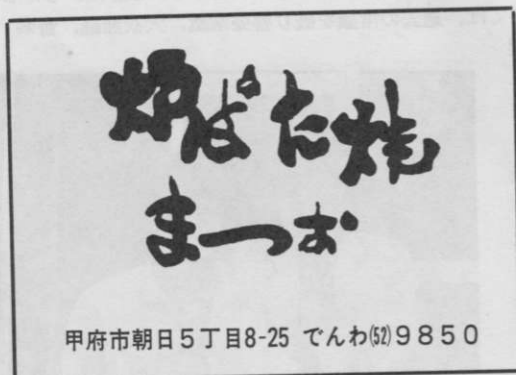 炉ばた焼
まつお
甲府市朝日5丁目8-25 でんわ(52)9850